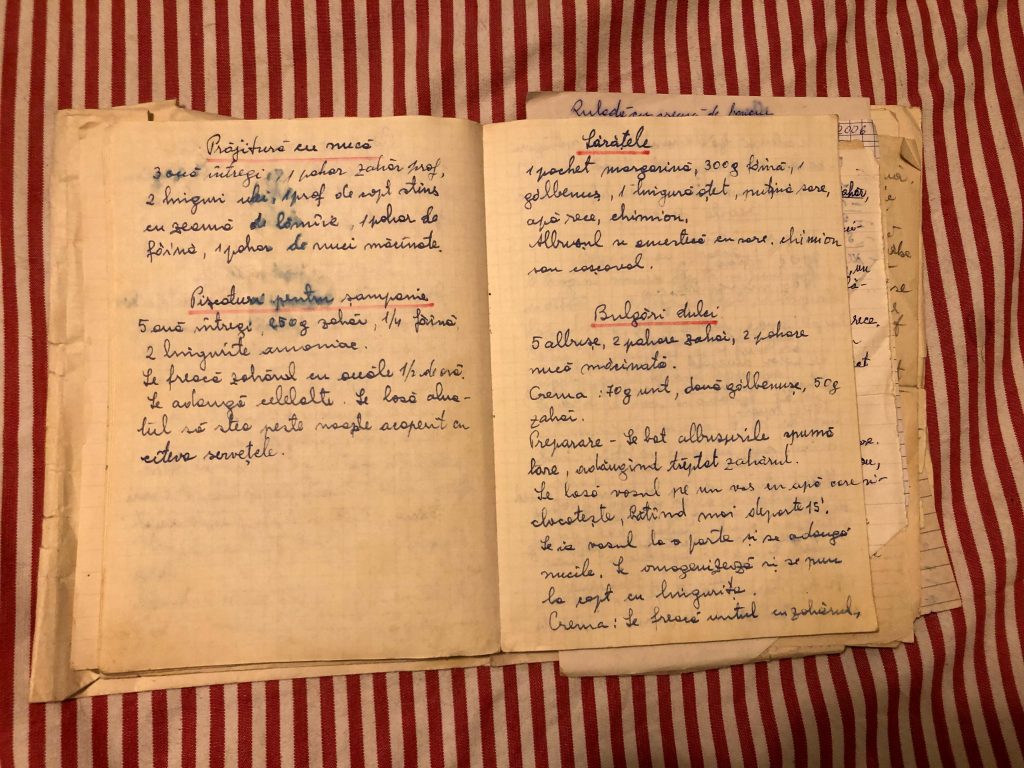 Prăjitură cu nucă
3 ouă întregi, 1 pahar zahăr praf,
2 linguri ulei, 1 praf de copt stins
cu zeamă de lămîie, 1 pahar de
făină, 1 pahar de nuci măcinate.
Pișcoturi pentru șampanie
5 ouă întregi, 250g zahăr, 1/4 făină
2 lingurite amoniac.
Se freacă zahărul cu ouăle 1/2 de oră.
Se adaugă celelalte. Se lasă alua-
tul să stea peste noapte acoperit cu
cîteva servețele.
Ruladă cu cremă de
2006
Sărățele
1 pachet margarină, 300g făină, 1
gălbenuș, 1 lingură oțet, puțină sare,
apă rece, chimion,
Albușul se amestecă cu sare, chimion
sau cașcaval.
Bulgări dulci
5 albușe, 2 pahare zahăr, 2 pahare
nucă măcinată.
Crema : 70g unt, două gălbenușe, 50g
zahăr.
Preparare - Se bat albușurile spumă
tare, adăugind treptat zahărul.
Se lasă vasul pe un vas cu apă care
clocotește, bătînd mai departe 15'.
Se ia vasul la o parte și se adaugă
nucile. Se omogenizează și se pun
la copt cu lingurița.
Crema : Se freacă untul cu zahărul,